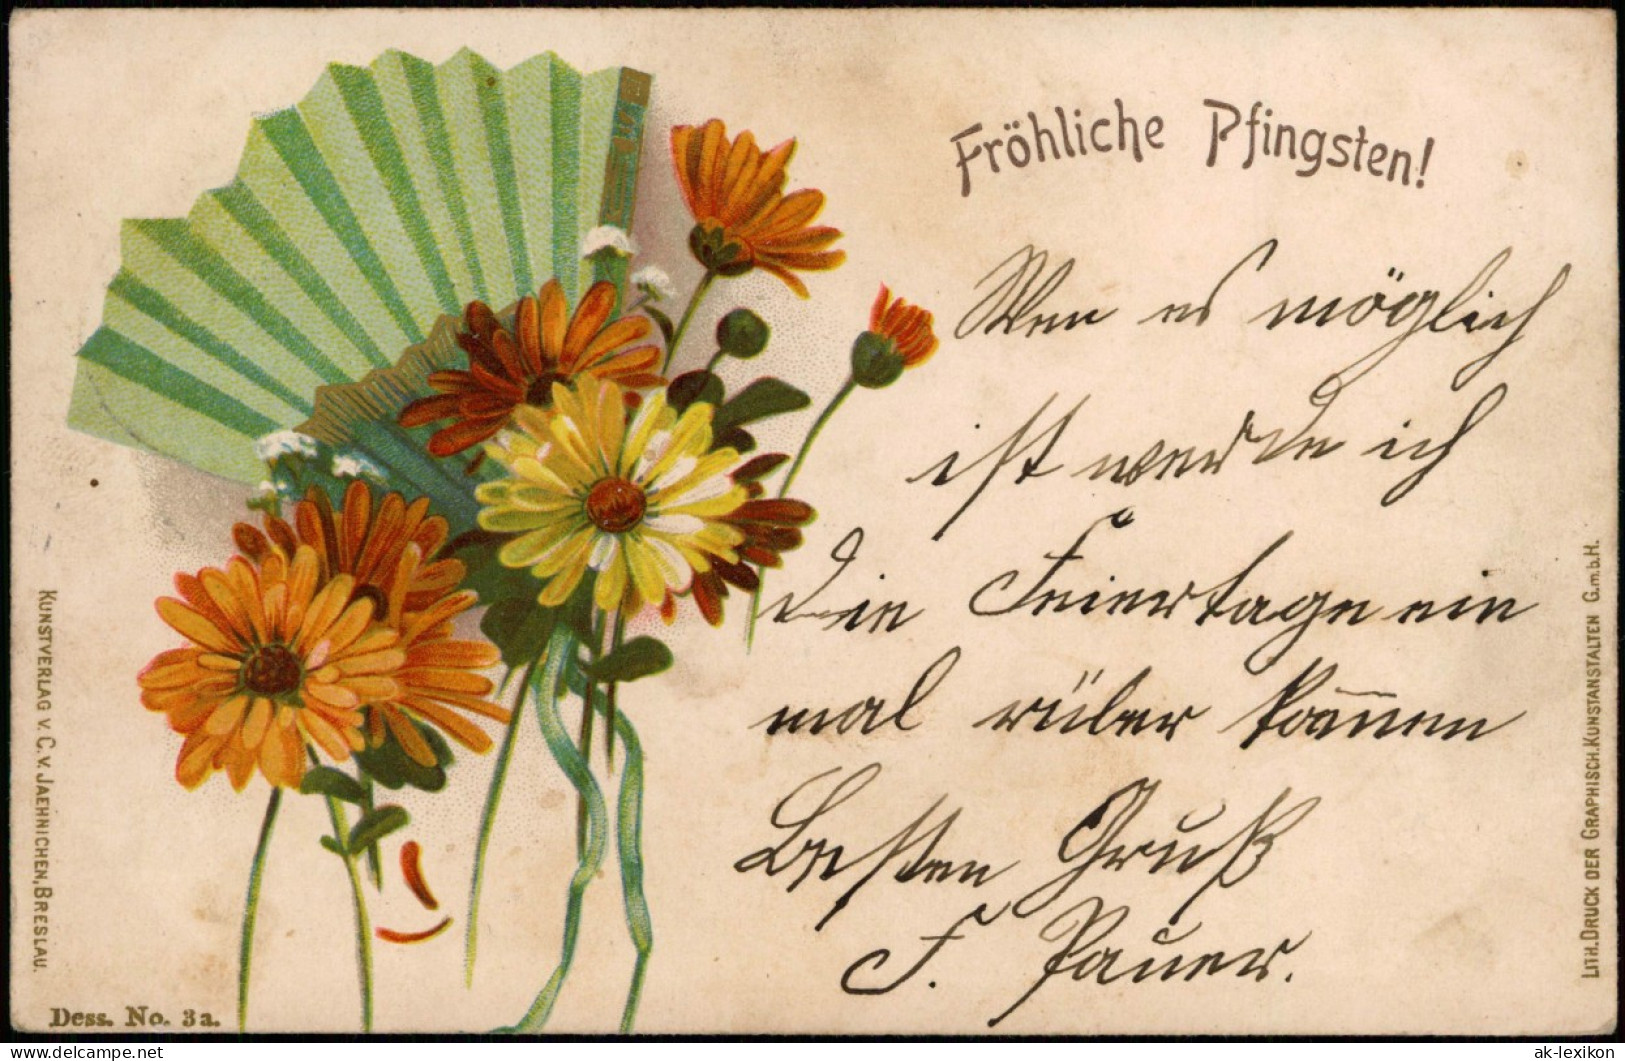 Fröhliche Pfingsten!
Wen es möglich
ist werde ich
die Feiertage ein
mal rüber kommen
Besten Gruß
F. Pauer.
KUNSTVERLAG v. C. v. JAEHNICHEN, BRESLAU.
LITH. DRUCK DER GRAPHISCH. KUNSTANSTALTEN G.m.b.H.
Dess. No. 3a.
www.delcampe.net
ak-lexikon